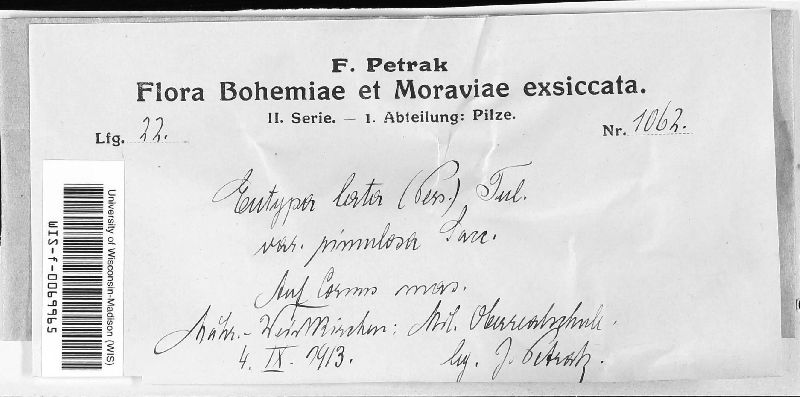 F. Petrak
Flora Bohemiae et Moraviae exsiccata.
II. Serie. — I. Abteilung: Pilze.
Lfg. 22.
Nr. 1062.
Eutypa lata (Pers.) Tul.
var. pinnulosa Sacc.
Auf Cornus mas.
Mähr.-Weisskirchen: Mil. Oberrealschule.
4. IX. 1913.
lg. J. Petrak.
University of Wisconsin-Madison (WIS)
WIS-f-0069965